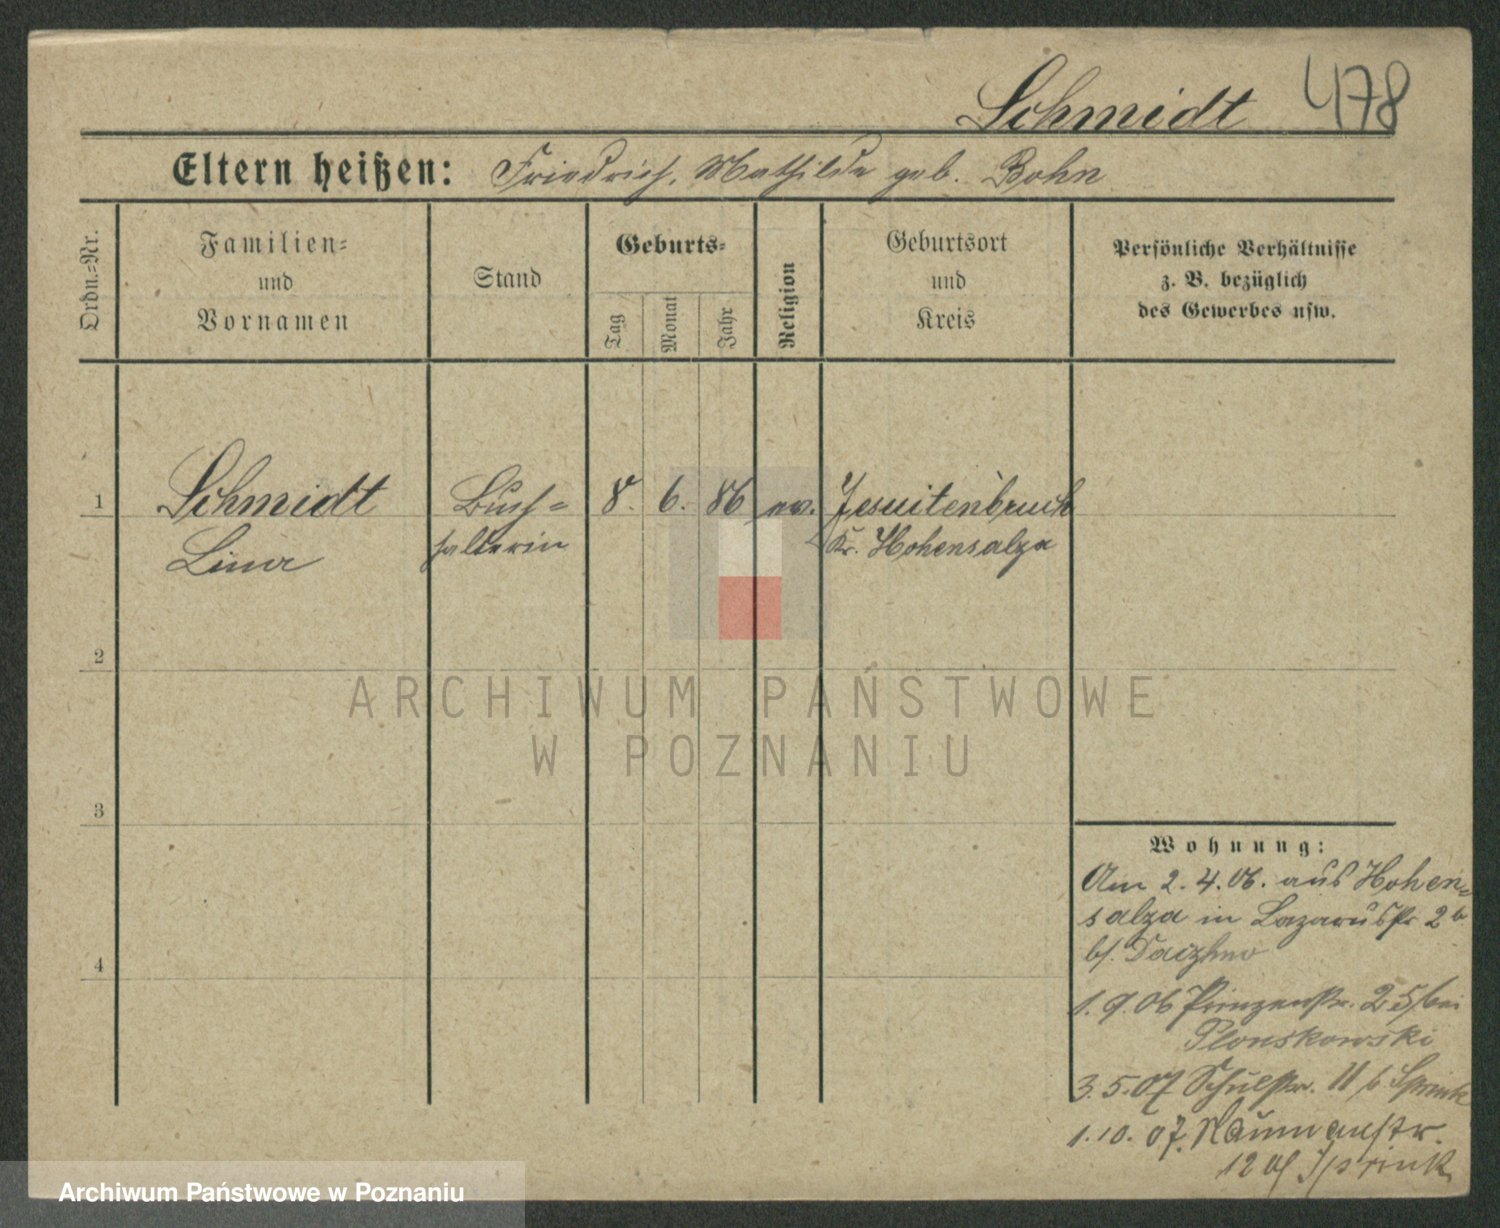 Schmidt 478
Eltern heißen: Friedrich, Mathilde geb. Bohn
Ordn.=Nr.
Familien=
und
Vornamen
Stand
Geburts=
Tag
Monat
Jahr
Religion
Geburtsort
und
Kreis
Persönliche Verhältnisse
z. B. bezüglich
des Gewerbes usw.
1 Schmidt Buch= 8. 6. 86 ev. Jesuitenbruch
Lina halterin Kr. Hohensalza
2
3
4
Wohnung:
Am 2.4.06. aus Hohen=
salza in Lazarusstr 2b
b/.
1.9.06 Prinzenstr. 25 bei
Plonskowski
3.5.07 Schulstr. 11 b
1.10.07. Naumannstr.
12
ARCHIWUM PAŃSTWOWE
W POZNANIU
Archiwum Państwowe w Poznaniu